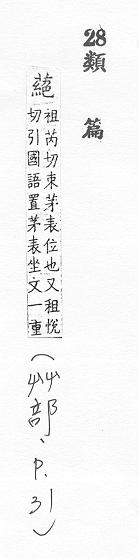 28 類篇
蕝
祖芮切束茅表位也又租悅
切引國語置茅表坐文一重
(艸部、P.31)